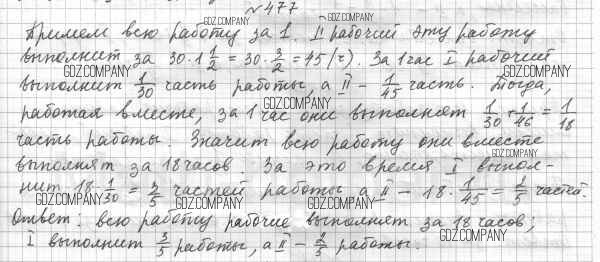 №477
Примем всю работу за 1. II рабочий эту работу
выполнит за 30·1 1/2 = 30·3/2 = 45 (г). За 1 час I рабочий
выполнит 1/30 часть работы, а II – 1/45 часть. Тогда,
работая вместе, за 1 час они выполнят 1/30 + 1/46 = 1/18
часть работы. Значит всю работу они вместе
выполнят за 18 часов. За это время I выпол-
нит 18·1/30 = 3/5 частей работы, а II – 18·1/45 = 2/5 частей.
Ответ: всю работу рабочие выполнят за 18 часов;
I выполнит 3/5 работы, а II – 2/5 работы.
GDZ.COMPANY
GDZ.COMPANY
GDZ.COMPANY
GDZ.COMPANY
GDZ.COMPANY
GDZ.COMPANY
GDZ.COMPANY
GDZ.COMPANY
GDZ.COMPANY
GDZ.COMPANY
GDZ.COMPANY